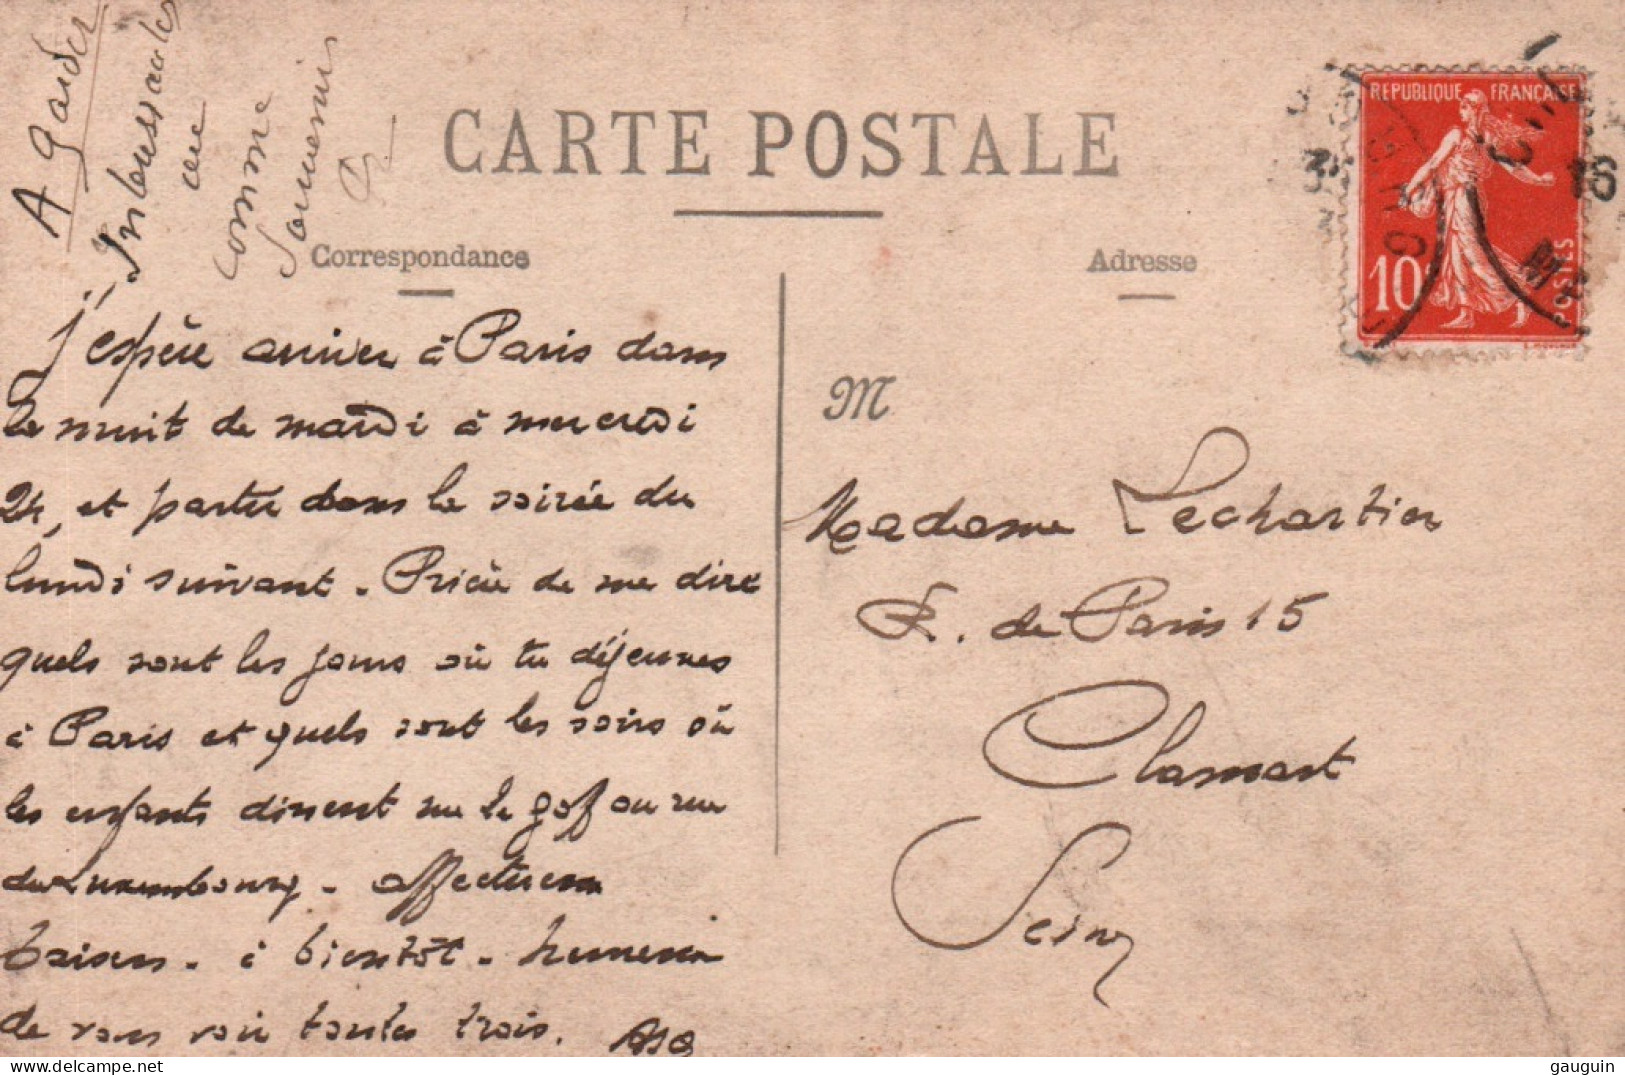 A garder
comme
souvenir
CARTE POSTALE
Correspondance
Adresse
REPUBLIQUE FRANÇAISE
10c
POSTES
16
j'espère arriver à Paris dans
la nuit de mardi à mercredi
24, et partir dans la soirée du
lundi suivant. Prière de me dire
quels sont les jours où tu déjeunes
à Paris et quels sont les soirs où
les enfants dinent rue le goff ou rue
du Luxembourg. affectueux
baisers. à bientôt. heureux
de vous voir toutes trois.
M
Madame Lechartier
R. de Paris 15
Clamart
Seine
gauguin